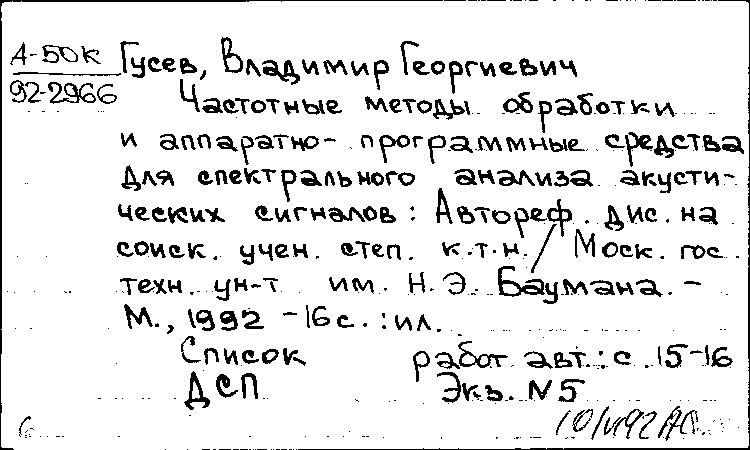 А-50к
92-2966
Гусев, Владимир Георгиевич
Частотные методы обработки
и аппаратно- программные средства
для спектрального анализа акусти-
ческих сигналов : Автореф. дис. на
соиск. учен. степ. к.т.н. / Моск. гос.
техн. ун-т им. Н. Э. Баумана. -
М., 1992 - 16 с. : ил.
Список работ авт.: с. 15-16
ДСП Экз. N5